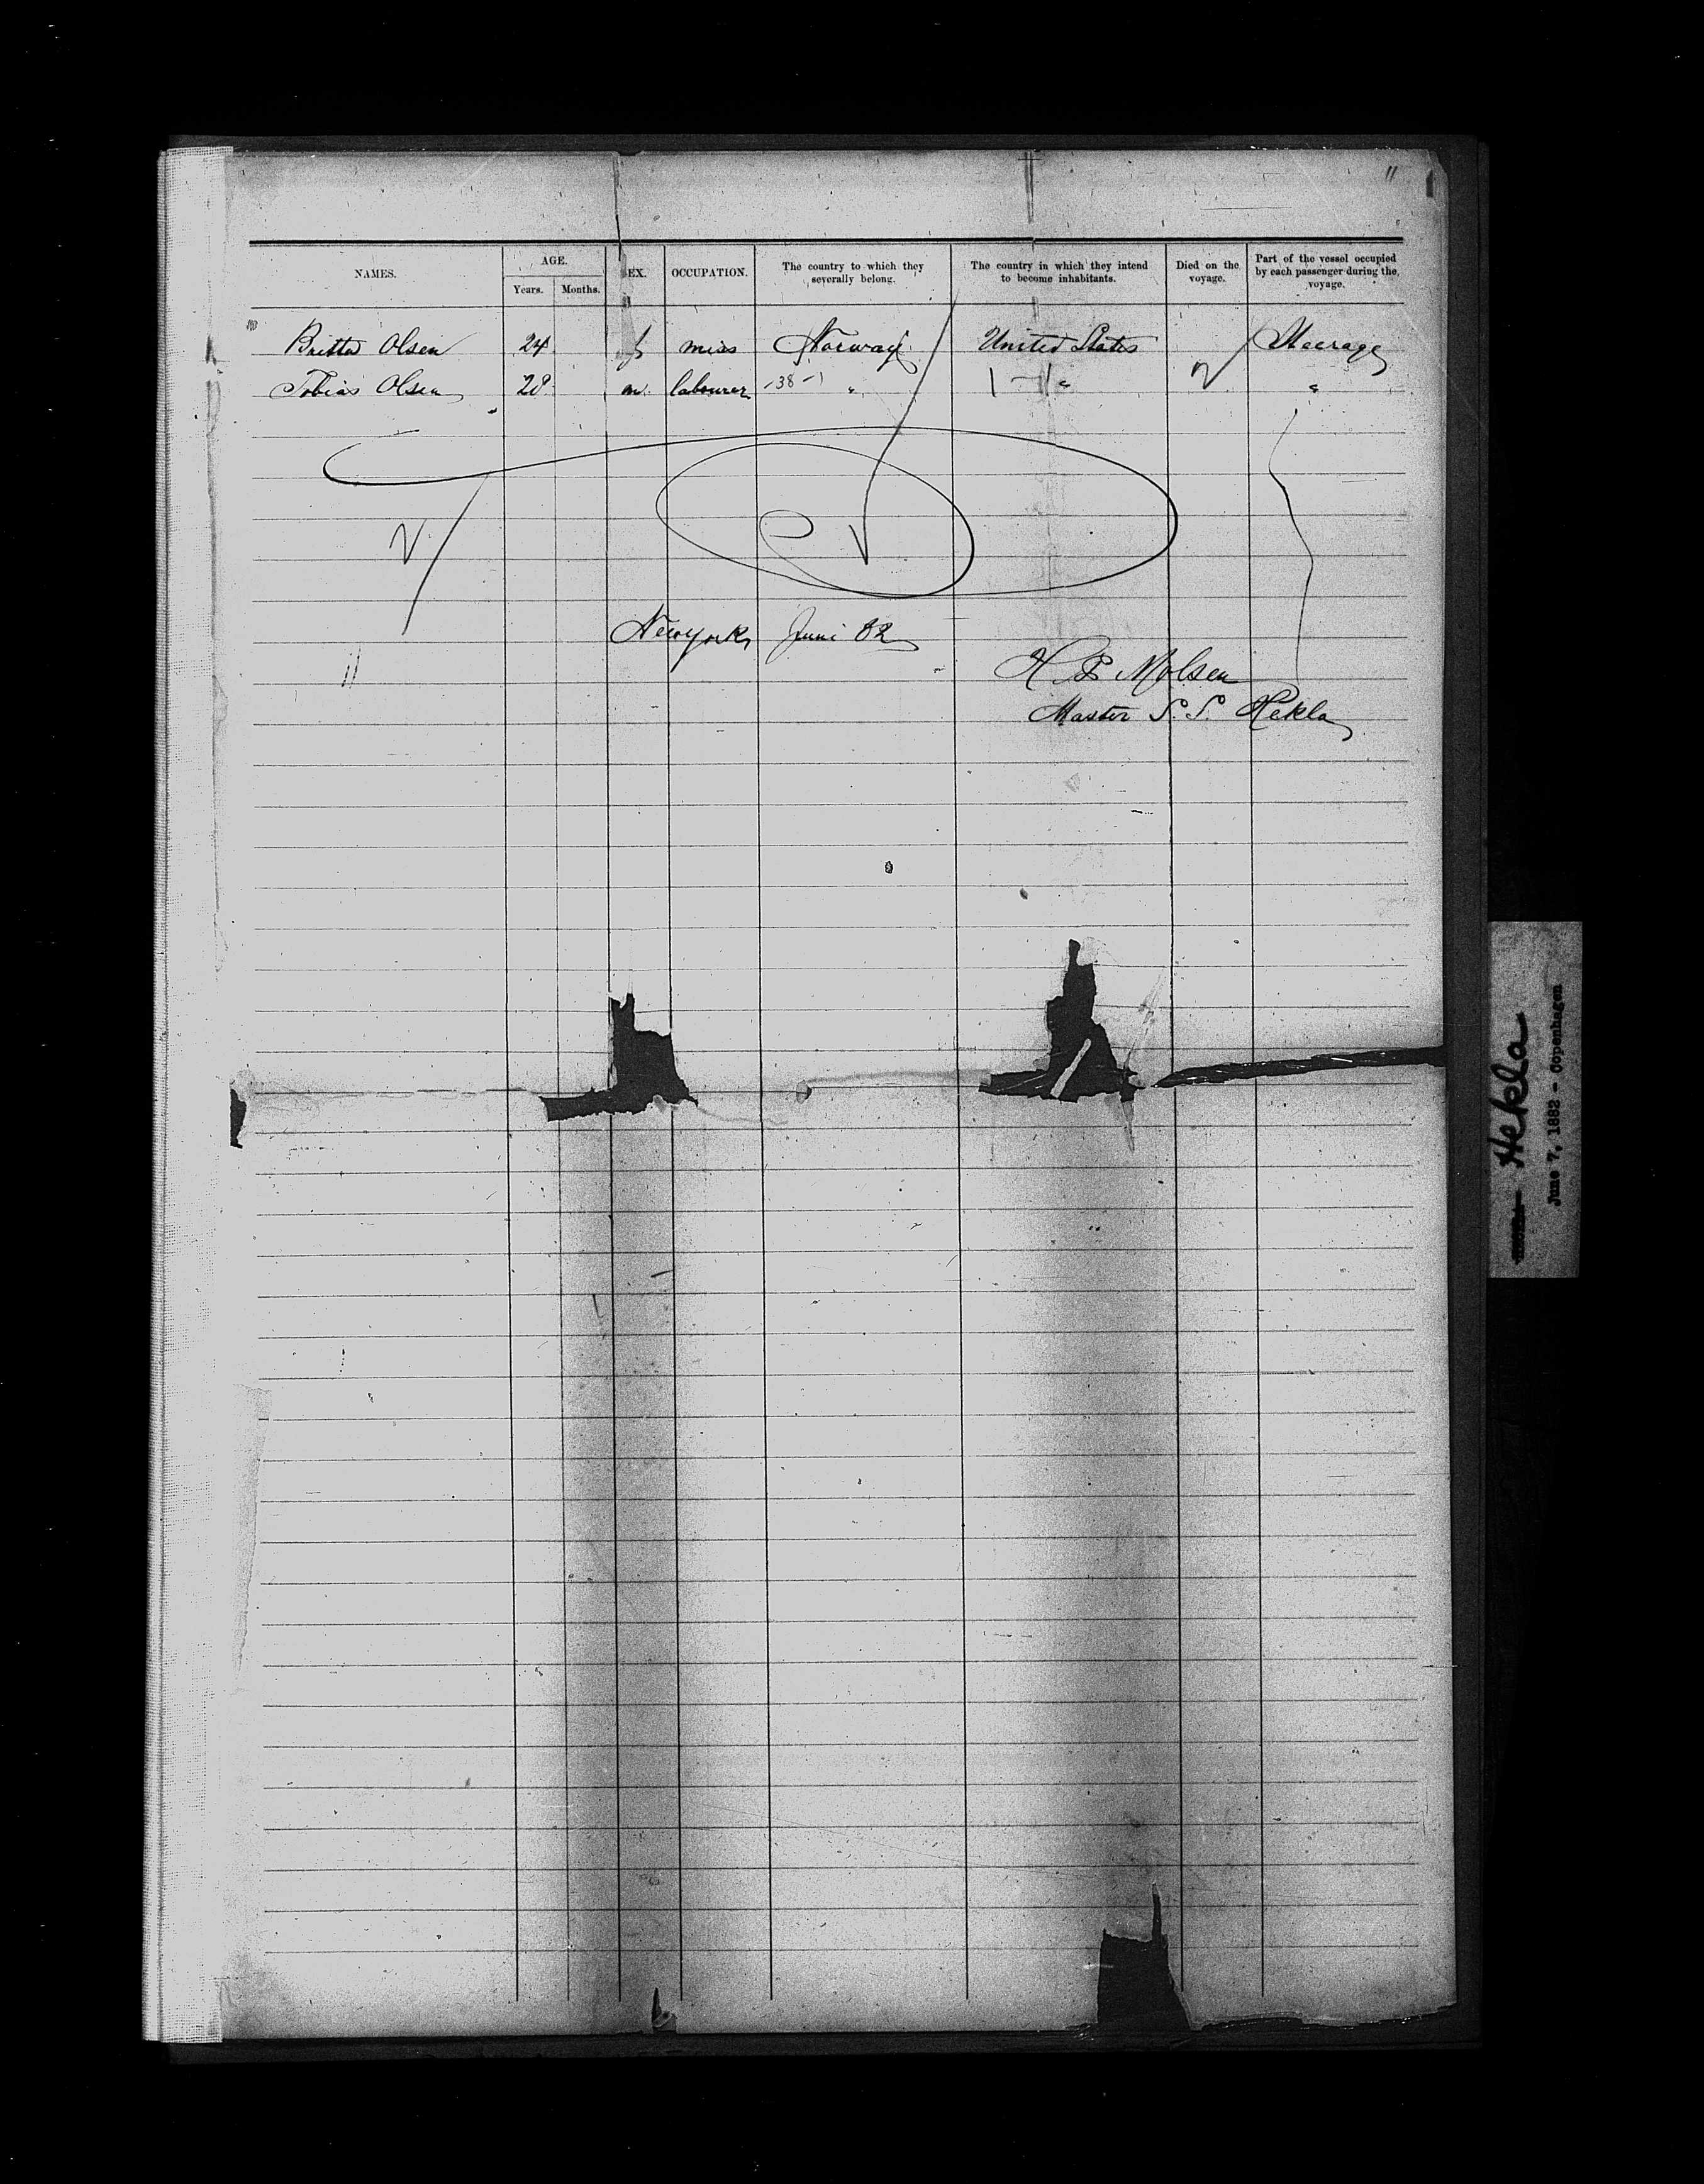 11
NAMES. AGE. SEX. OCCUPATION. The country to which they severally belong. The country in which they intend to become inhabitants. Died on the voyage. Part of the vessel occupied by each passenger during the voyage.
Years. Months.
Britta Olsen 24 f miss Norway United States Steerage
Tobias Olsen 28 m. labourer -38-1 " " "
New york Juni 82
H P Molsen
Master S.S. Hekla
11
Hekla
June 7, 1882 - Copenhagen